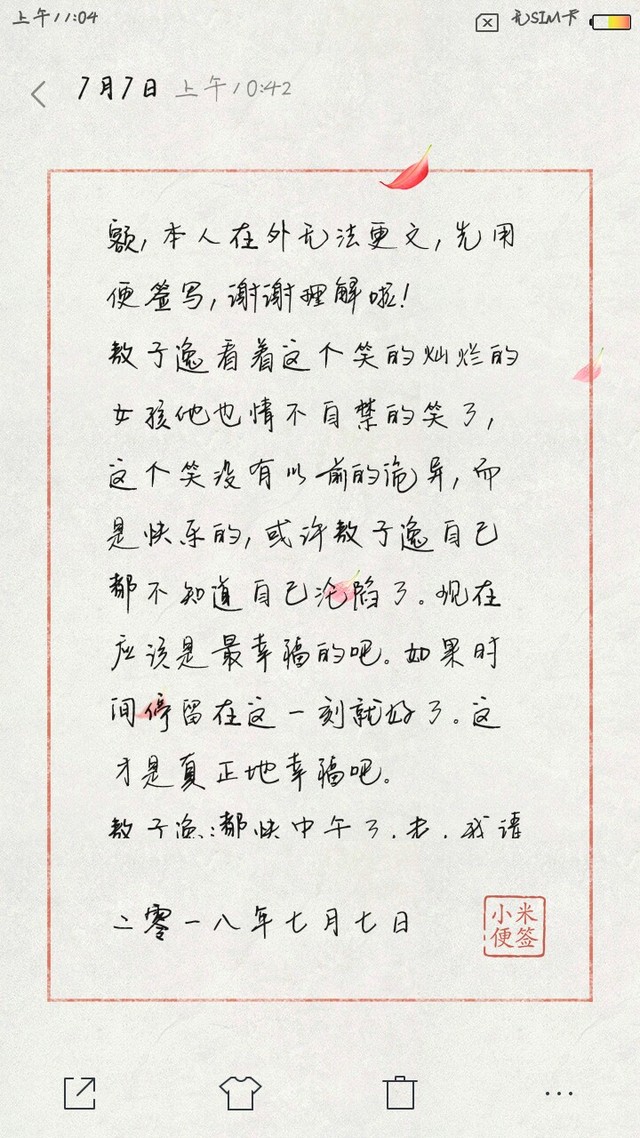 上午11:04
无SIM卡
7月7日 上午10:42
额,本人在外无法更文,先用
便签写,谢谢理解啦!
敖子逸看着这个笑的灿烂的
女孩他也情不自禁的笑了,
这个笑没有以前的诡异,而
是快乐的,或许敖子逸自己
都不知道自己沦陷了。现在
应该是最幸福的吧。如果时
间停留在这一刻就好了。这
才是真正地幸福吧。
敖子逸:都快中午了.走.我请
二零一八年七月七日
小米
便签